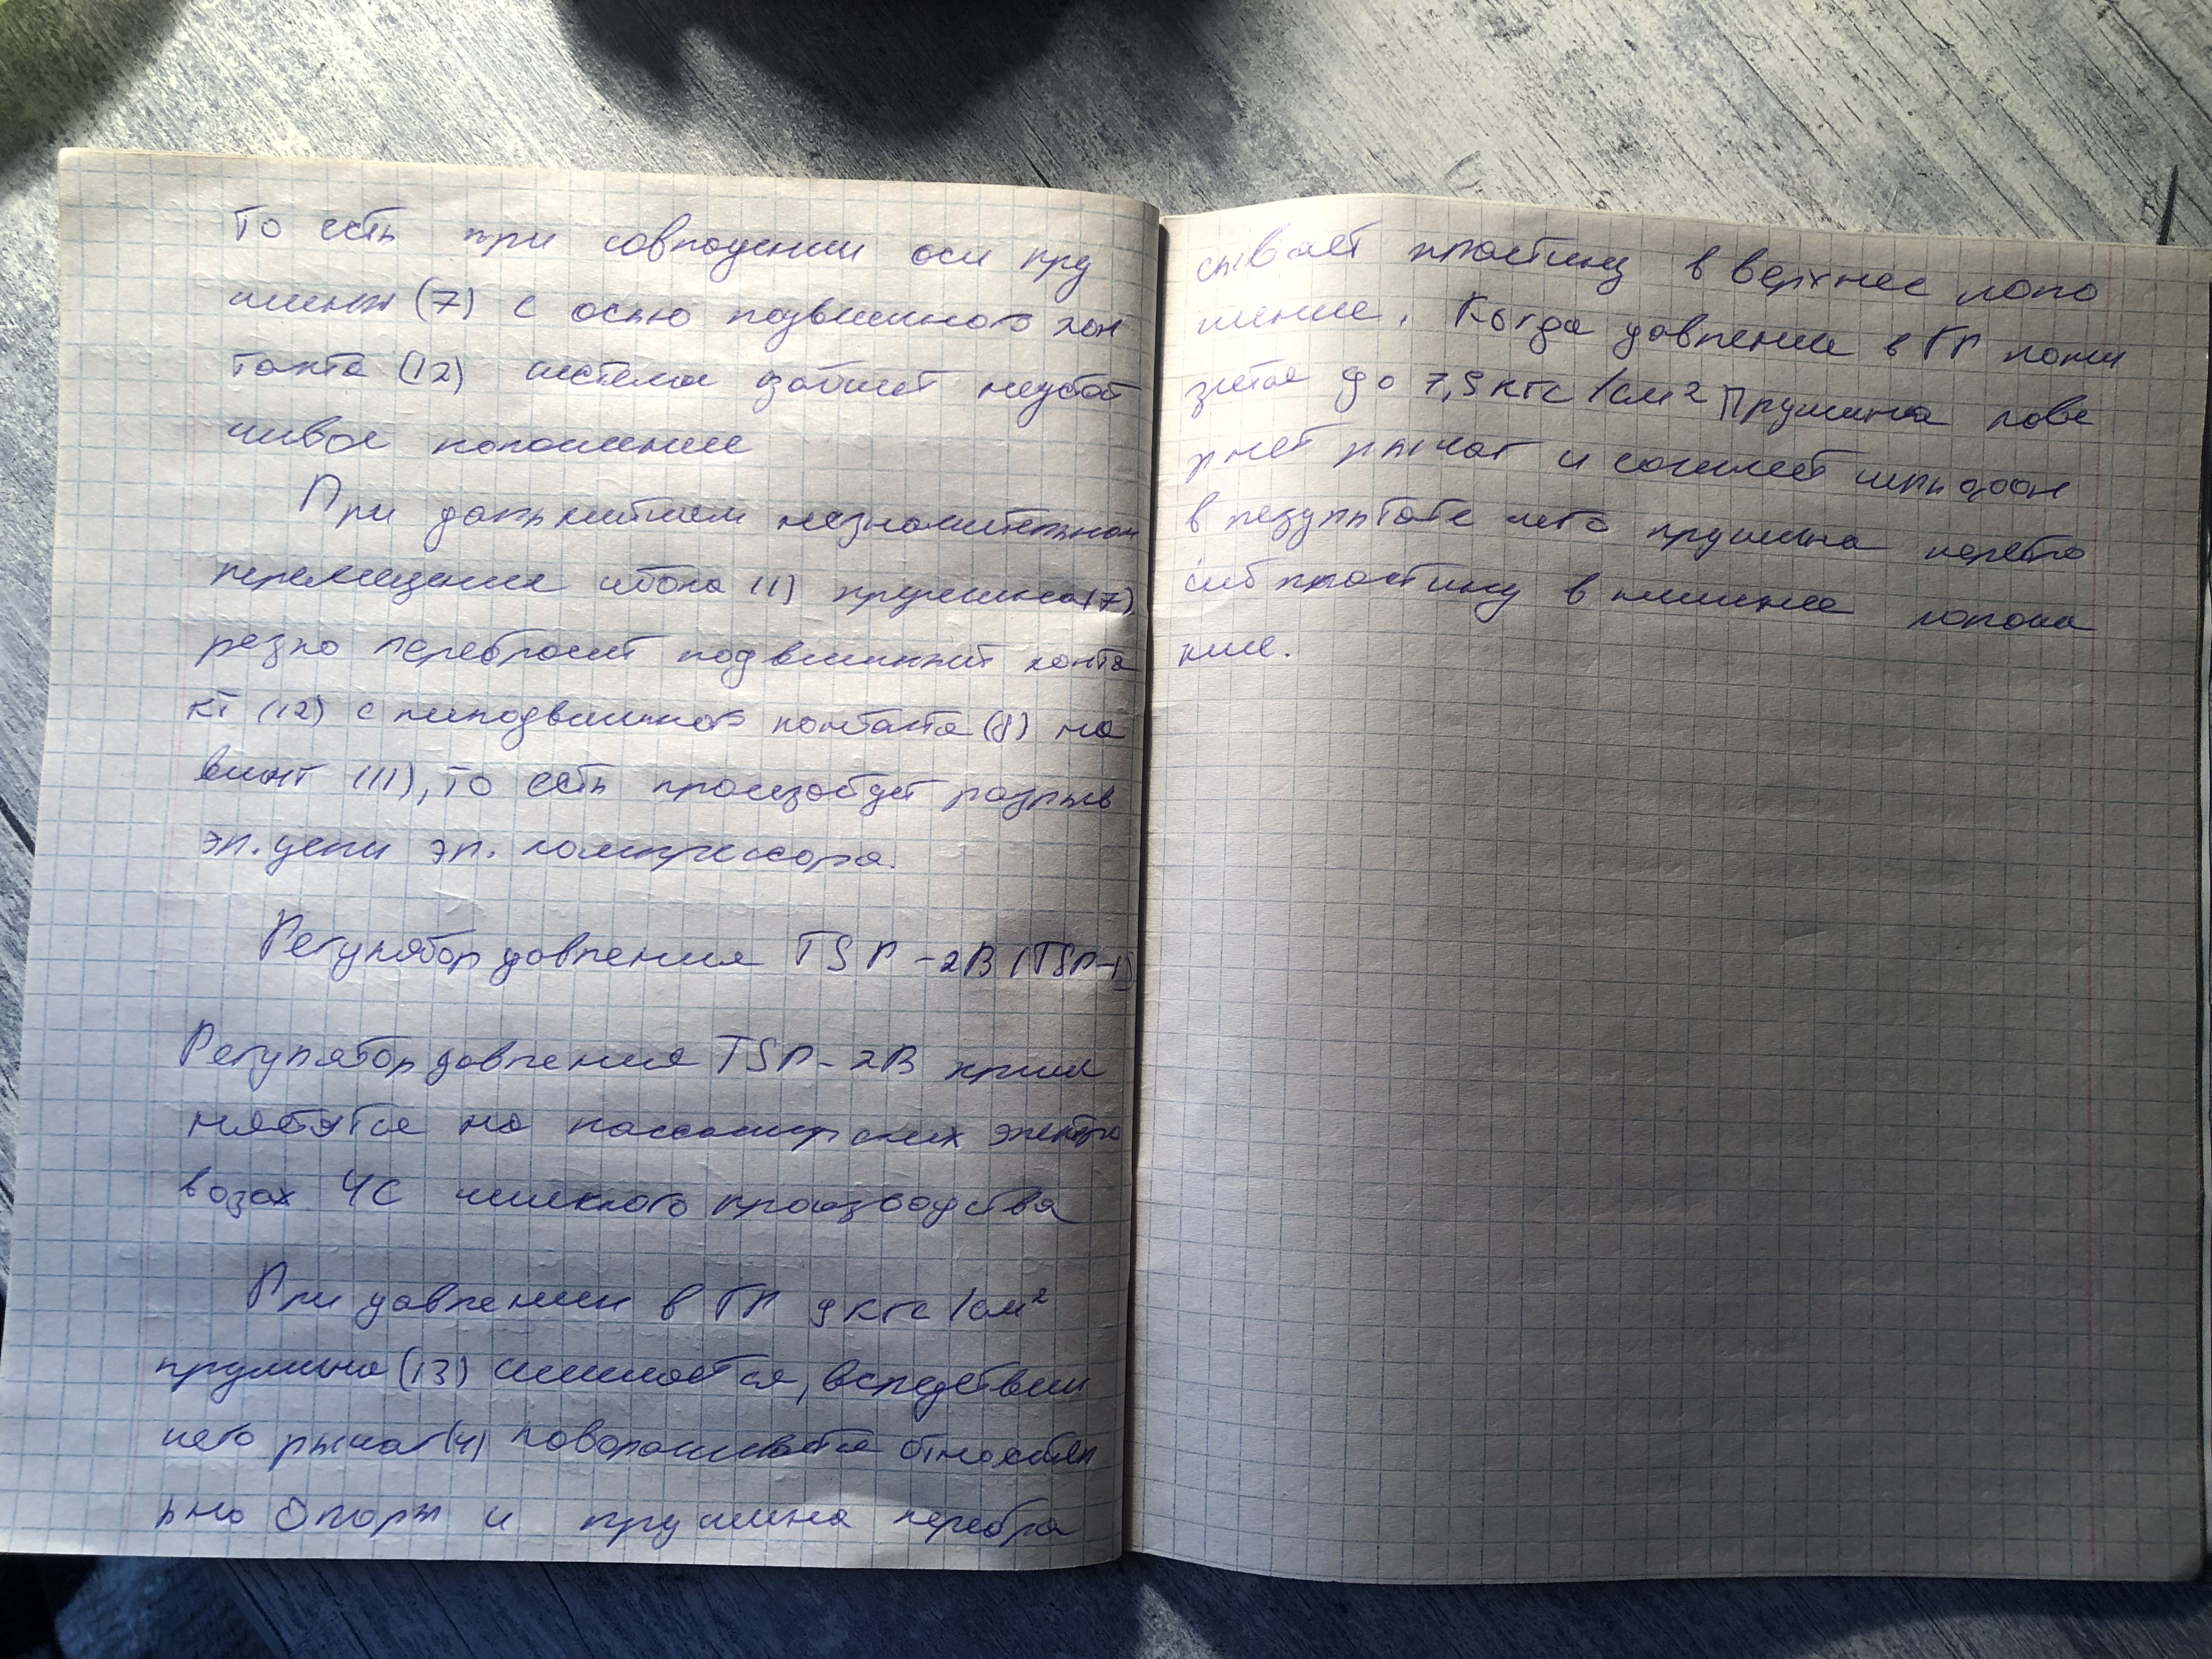 То есть при совпадении оси пру
жины (7) с осью подвижного кон
такта (12) система займет неустой
чивое положение
При дальнейшем незначительном
перемещение штока (1) пружина (7)
резко перебросит подвижный конта
кт (12) с неподвижного контакта (8) на
винт (11), то есть произойдет разрыв
эл. цепи эл. компрессора.
Регулятор давления TSP-2B (TSP-
Регулятор давления TSP-2B приме
няются на пассажирских электро
возах ЧС чешского производства
При давлении в ГР 9 кгс/см²
пружина (13) сжимается, вследствии
чего рычаг (4) поворачивается относител
ьно опоры и пружина перебра
сывает пластину в верхнее поло
жение. Когда давление в ГР пони
зится до 7,5 кгс/см² Пружина пове
рнет рычаг и сожмет
в результате чего пружина перебро
сит пластину в нижнее положе
ние.